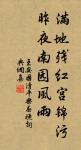 满地残红宫锦污
昨夜南园风雨
王安国清平乐春晚词